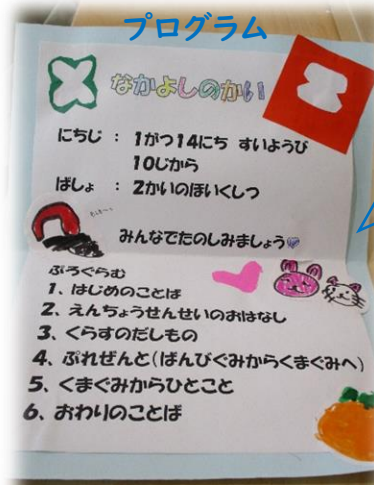 プログラム
なかよしのかい
にちじ : 1がつ14にち すいようび
10じから
ばしょ : 2かいのほいくしつ
みんなでたのしみましょう
ぷろぐらむ
1、はじめのことば
2、えんちょうせんせいのおはなし
3、くらすのだしもの
4、ぷれぜんと(ばんびぐみからくまぐみへ)
5、くまぐみからひとこと
6、おわりのことば